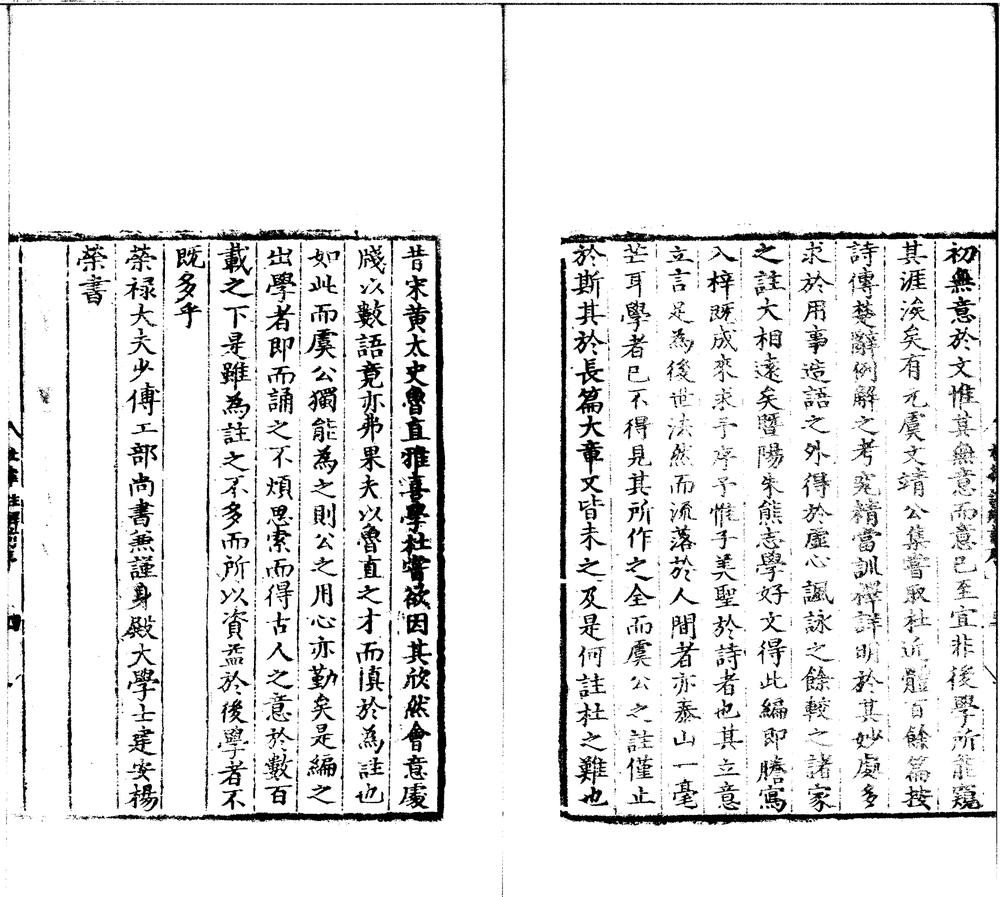 初無意於文惟其無意而意已至宜非後學所能窺
其涯涘矣有元虞文靖公集嘗取杜近體百餘篇按
詩傳楚辭例解之考究精當訓釋詳明於其妙處多
求於用事造語之外得於虛心諷詠之餘較之諸家
之註大相遠矣曁陽朱熊志學好文得此編即謄寫
入梓既成來求予序予惟子美聖於詩者也其立意
立言足為後世法然而流落於人間者亦泰山一毫
芒耳學者已不得見其所作之全而虞公之註僅止
於斯其於長篇大章又皆未之及是何註杜之難也
昔宋黃太史魯直雅喜學杜嘗欲因其欣然會意處
牋以數語竟亦弗果夫以魯直之才而慎於為註也
如此而虞公獨能為之則公之用心亦勤矣是編之
出學者即而誦之不煩思索而得古人之意於數百
載之下是雖為註之不多而所以資益於後學者不
既多乎
榮禄大夫少傅工部尚書兼謹身殿大學士建安楊
榮書